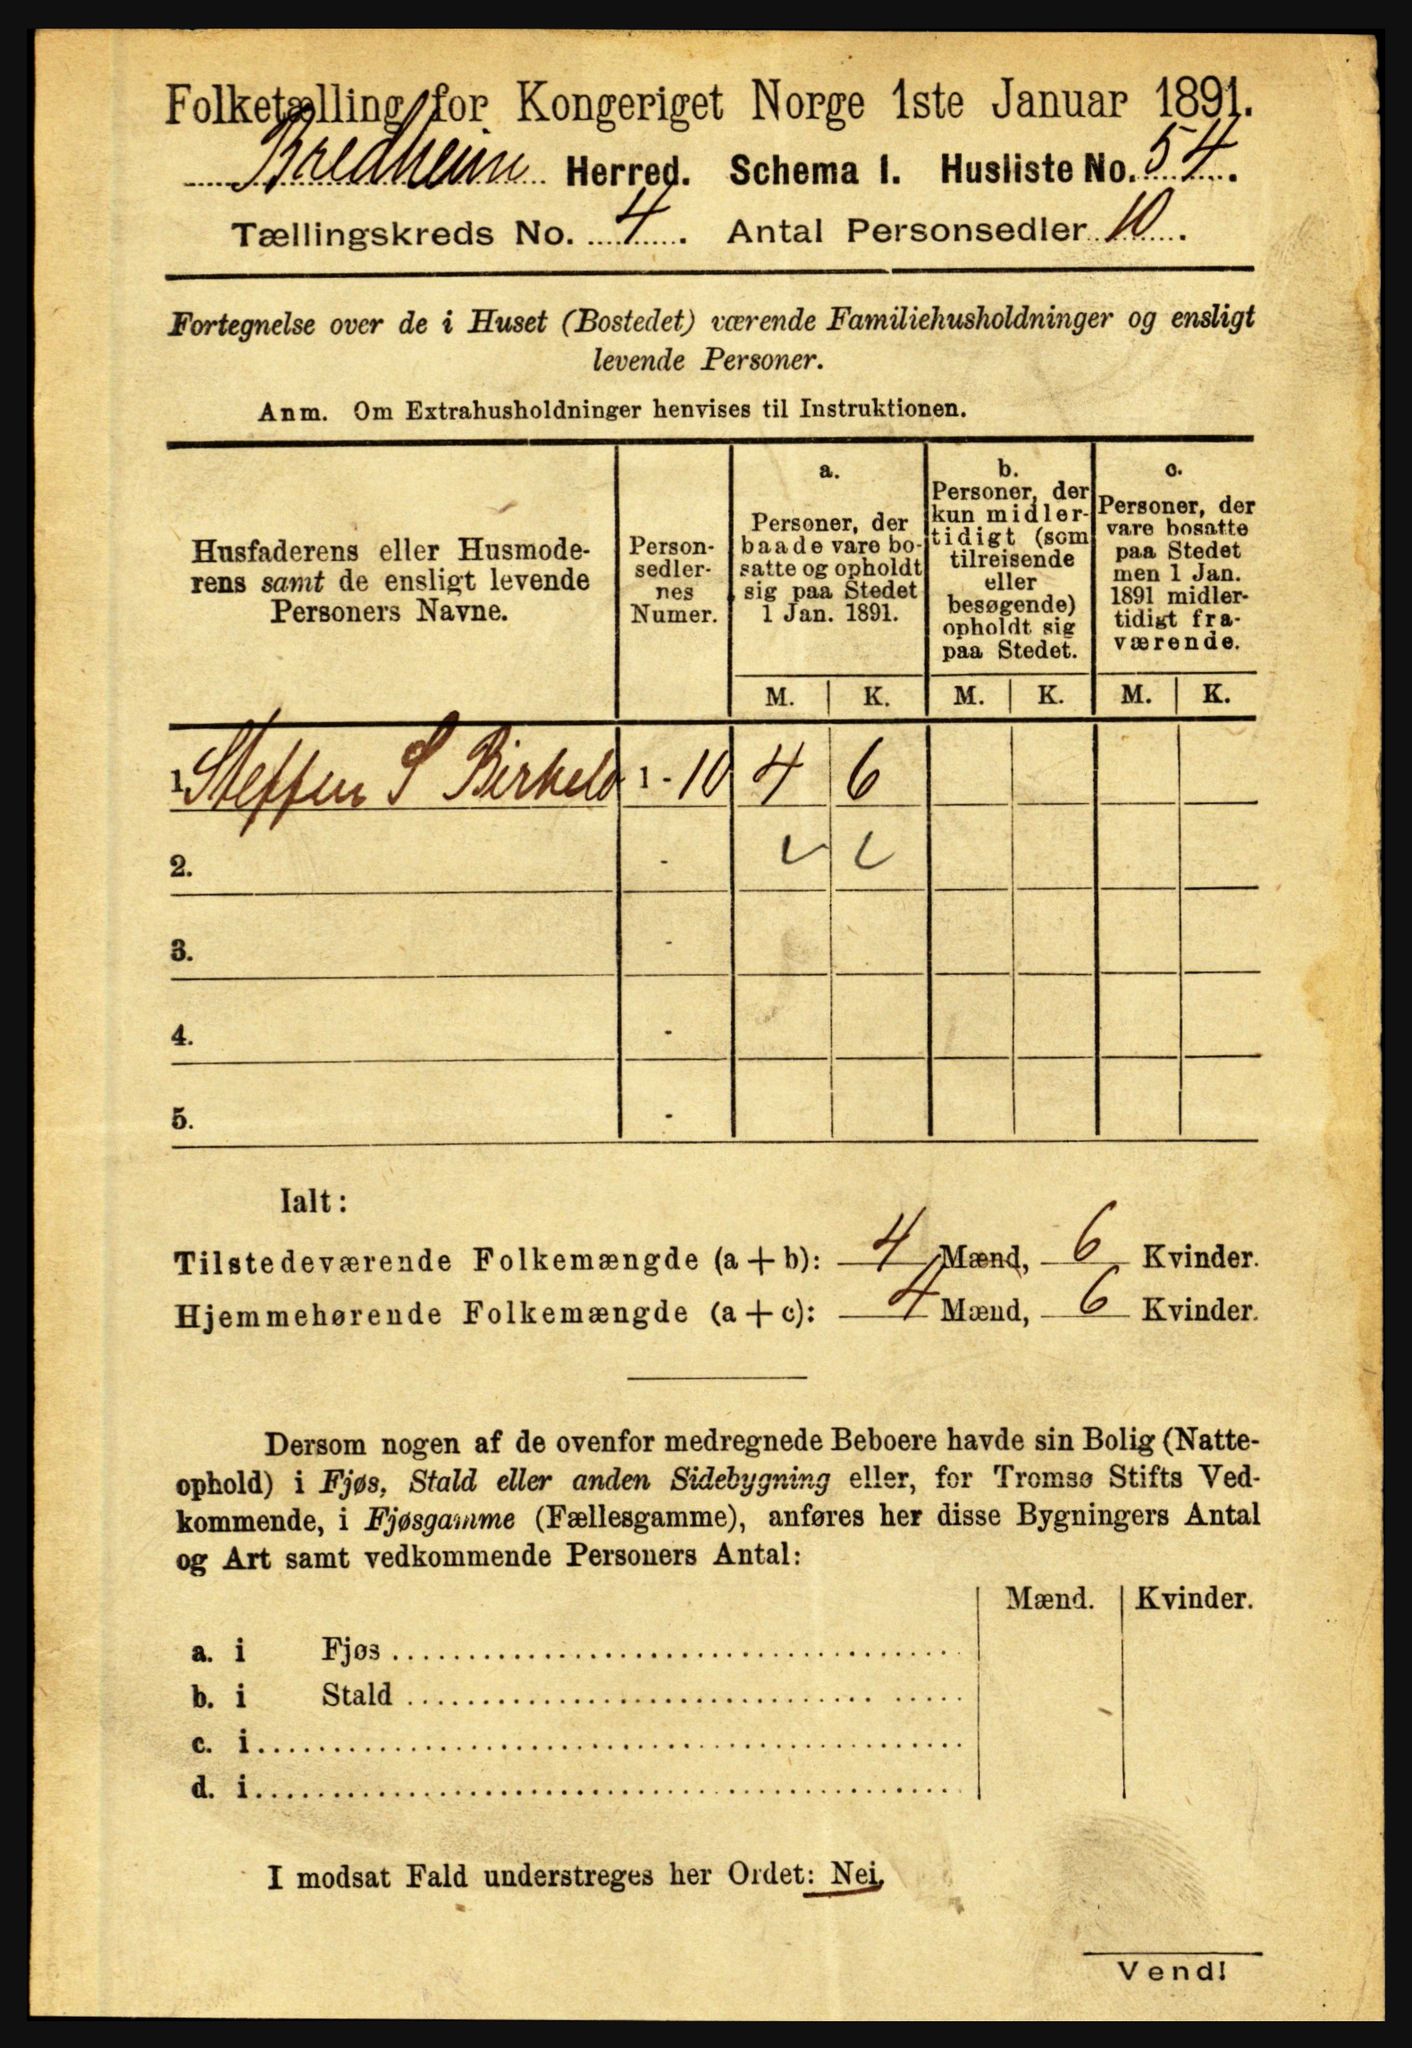 Folketælling for Kongeriget Norge 1ste Januar 1891.
Bredheim Herred. Schema 1. Husliste No. 54.
Tællingskreds No. 4. Antal Personsedler 10.
Fortegnelse over de i Huset (Bostedet) værende Familiehusholdninger og ensligt
levende Personer.
Anm. Om Extrahusholdninger henvises til Instruktionen.
Husfaderens eller Husmode-
rens samt de ensligt levende
Personers Navne.
Person-
sedler-
nes
Numer.
a.
Personer, der
baade vare bo-
satte og opholdt
sig paa Stedet
1 Jan. 1891.
b.
Personer, der
kun midler-
tidigt (som
tilreisende
eller
besøgende)
opholdt sig
paa Stedet.
c.
Personer, der
vare bosatte
paa Stedet
men 1 Jan.
1891 midler-
tidigt fra-
værende.
M. K. M. K. M. K.
1. Steffen S Birkelo 1 - 10 4 6
2. -
3. -
4. -
5. -
Ialt:
Tilstedeværende Folkemængde (a + b): 4 Mænd, 6 Kvinder.
Hjemmehørende Folkemængde (a + c): 4 Mænd, 6 Kvinder.
Dersom nogen af de ovenfor medregnede Beboere havde sin Bolig (Natte-
ophold) i Fjøs, Stald eller anden Sidebygning eller, for Tromsø Stifts Ved-
kommende, i Fjøsgamme (Fællesgamme), anføres her disse Bygningers Antal
og Art samt vedkommende Personers Antal:
Mænd. Kvinder.
a. i Fjøs
b. i Stald
c. i
d. i
I modsat Fald understreges her Ordet: Nei.
Vend!